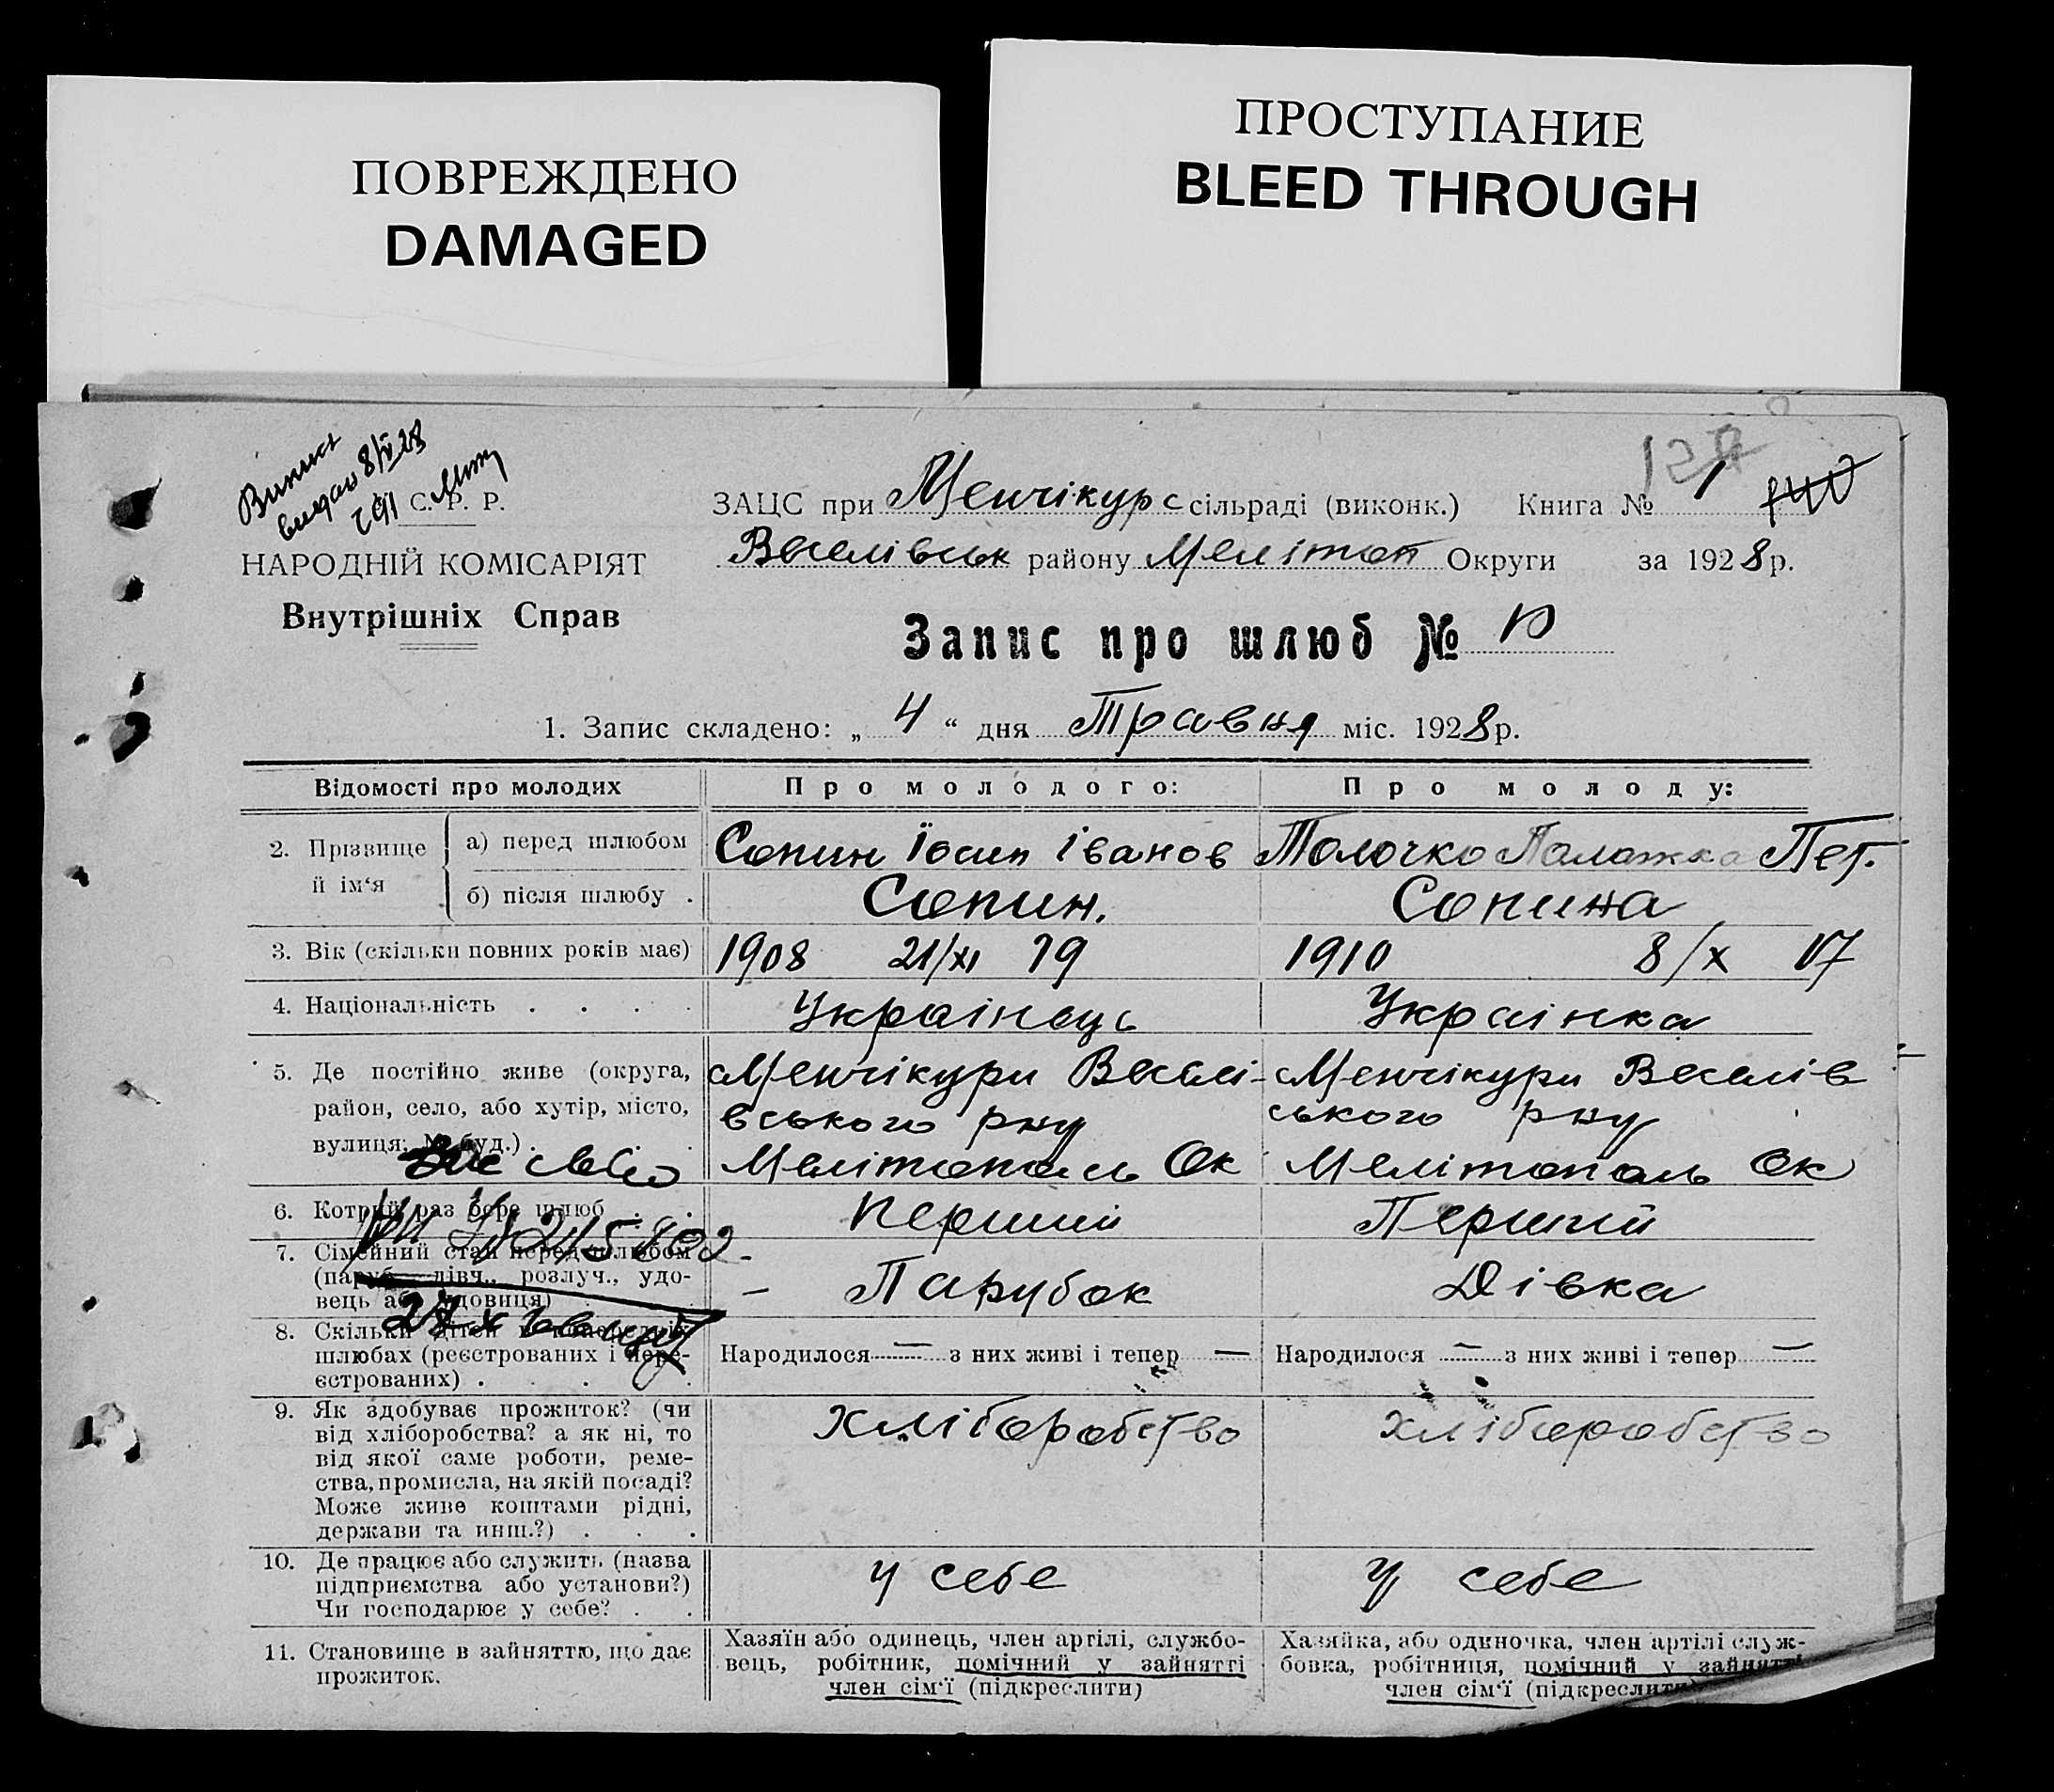 ПОВРЕЖДЕНО
DAMAGED
ПРОСТУПАНИЕ
BLEED THROUGH
видано 8/IV 28
С. Р. Р.
НАРОДНІЙ КОМІСАРІЯТ
Внутрішніх Справ
ЗАЦС при Менчікурс сільраді (виконк.) Книга № 1
Веселівськ району Мелітоп Округи за 1928 р.
Запис про шлюб № 10
1. Запис складено: „ 4 “ дня Травня міс. 1928 р.
Відомості про молодих
Про молодого:
Про молоду:
2. Прізвище й ім‘я
а) перед шлюбом
Сопин Їосип Іванов
Толочко Палажка Пет.
б) після шлюбу .
Сопин.
Сопина
3. Вік (скільки повних років має)
1908 21/XI 19
1910 8/X 17
4. Національність . . . .
Українець
Украінка
5. Де постійно живе (округа,
район, село, або хутір, місто,
вулиця, № буд.) .
Менчікури Веселі-
вського рну
Мелітополь Ок
Менчікури Веселів
ського рну
Мелітополь Ок
6. Котрий раз бере шлюб . .
Перший
Перший
7. Сімейний стан перед шлюбом
(паруб., дівч., розлуч., удо-
вець або удовиця)
— Парубок
Дівка
8. Скільки дітей в попередніх
шлюбах (реєстрованих і нере-
єстрованих) . . .
Народилося — з них живі і тепер —
Народилося — з них живі і тепер —
9. Як здобуває прожиток? (чи
від хліборобства? а як ні, то
від якої саме роботи, реме-
ства, промисла, на якій посаді?
Може живе коштами рідні,
держави та инш.?) . . .
Хліборобство
Хліборобство
10. Де працює або служить (назва
підприємства або установи?)
Чи господарює у себе? . .
У себе
У себе
11. Становище в зайняттю, що дає
прожиток.
Хазяїн або одинець, член артілі, службо-
вець, робітник, помічний у зайнятті
член сім‘ї (підкреслити)
Хазяйка, або одиночка, член артілі служ-
бовка, робітниця, помічний у зайнятті
член сім‘ї (підкреслити)